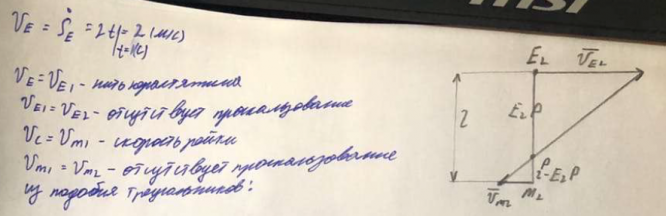 V_E = Ṡ_E = 2t|_{t=1(c)} = 2 (м/с)
V_E = V_{E1} - нить нерастяжима
V_{E1} = V_{E2} - отсутствует проскальзование
V_C = V_{m1} - скорость рейки
V_{m1} = V_{m2} - отсутствует проскальзование
из подобия треугольников:
E_2
V̄_{E2}
E_2P
2
P
2-E_2P
V̄_{m2}
M_2
msi